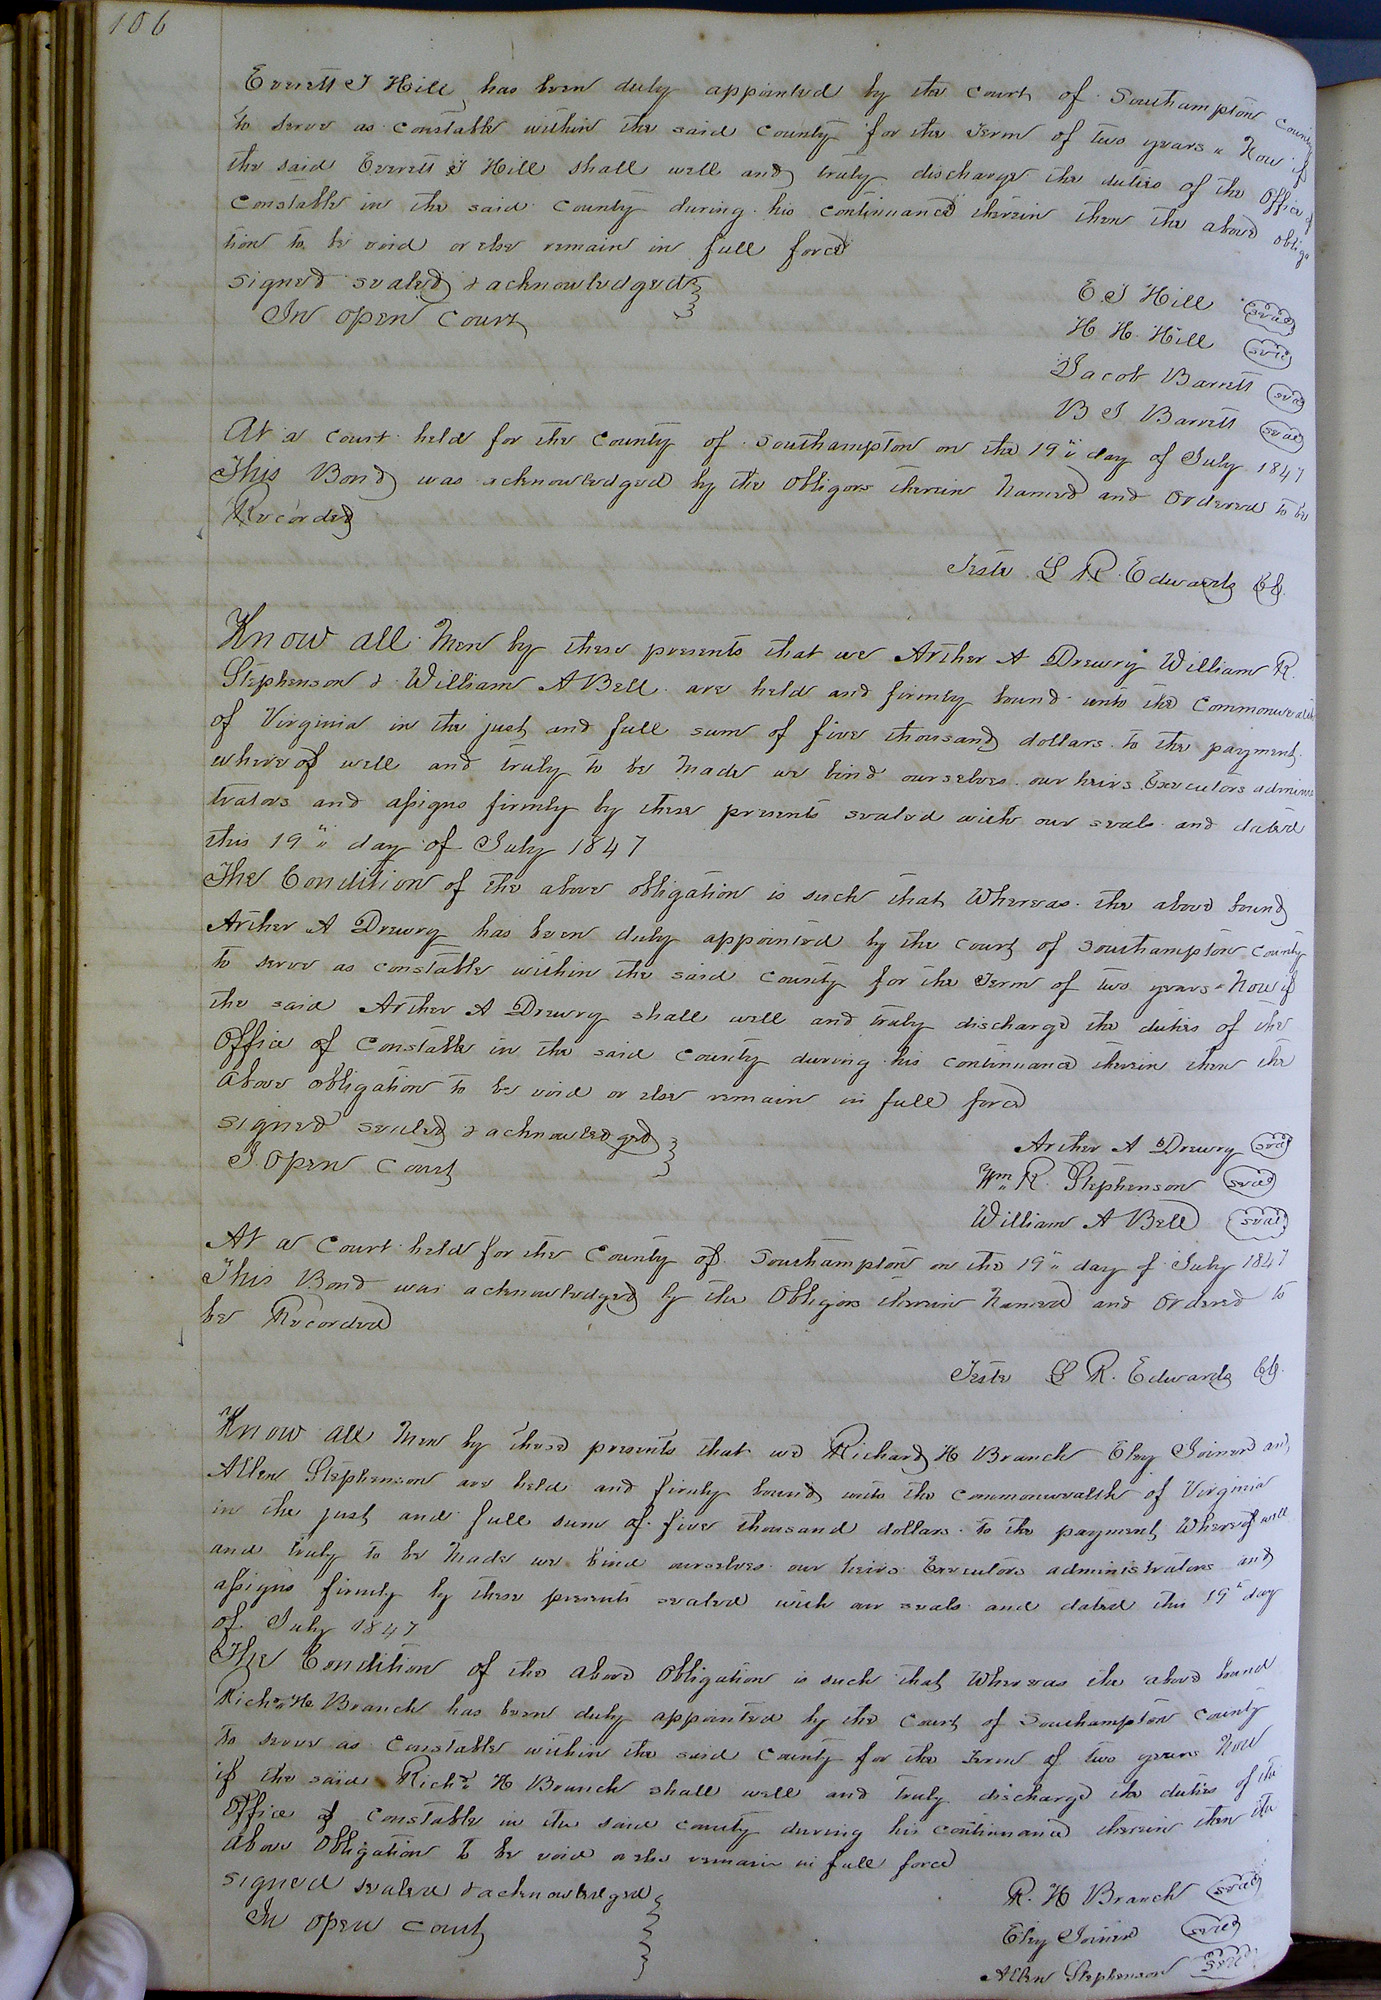 106
Everett J Hill, has been duly appointed by the court of Southampton County
to serve as constable within the said County for the Term of two years " Now if
the said Everett J Hill shall well and truly discharge the duties of the Office of
Constable in the said County during his continuance therein then the above obliga
tion to be void or else remain in full force
signed sealed & acknowledged
In open Court
E J Hill seal
H. H. Hill seal
Jacob Barrett seal
B J Barrett seal
At a Court held for the County of Southampton on the 19" day of July 1847
This Bond was acknowledged by the Obligors therein Named and Ordered to be
Recorded
Teste L R. Edwards Cl.
Know all Men by these presents that we Archer A Drewry William R.
Stephenson & William A Bell are held and firmly bound unto the Commonwealth
of Virginia in the just and full sum of five thousand dollars to the payment
whereof well and truly to be Made we bind ourselves our heirs Executors adminis
trators and assigns firmly by these presents sealed with our seals and dated
this 19" day of July 1847
The Condition of the above obligation is such that Whereas the above bound
Archer A Drewry has been duly appointed by the Court of Southampton County
to serve as constable within the said County for the Term of two years " Now if
the said Archer A Drewry shall well and truly discharge the duties of the
Office of Constable in the said County during his continuance therein then the
above obligation to be void or else remain in full force
signed sealed & acknowledged
I open Court
Archer A Drewry seal
Wm R. Stephenson seal
William A Bell seal
At a Court held for the County of Southampton on the 19" day of July 1847
This Bond was acknowledged by the Obligors therein Named and Ordered to
be Recorded
Teste L R. Edwards Cl.
Know all Men by these presents that we Richard H Branch Eley Joiner and
Allen Stephenson are held and firmly bound unto the Commonwealth of Virginia
in the just and full sum of five thousand dollars to the payment Whereof well
and truly to be Made we bind ourselves our heirs Executors administrators and
assigns firmly by these presents sealed with our seals and dated this 19" day
of July 1847
The Condition of the above Obligation is such that Whereas the above bound
Richd H Branch has been duly appointed by the Court of Southampton County
to serve as Constable within the said County for the Term of two years Now
if the said Richd H Branch shall well and truly discharge the duties of the
Office of Constable in the said County during his continuance therein then the
above Obligation to be void or else remain in full force
signed sealed & acknowledged
In open Court
R. H Branch seal
Eley Joiner seal
Allen Stephenson seal